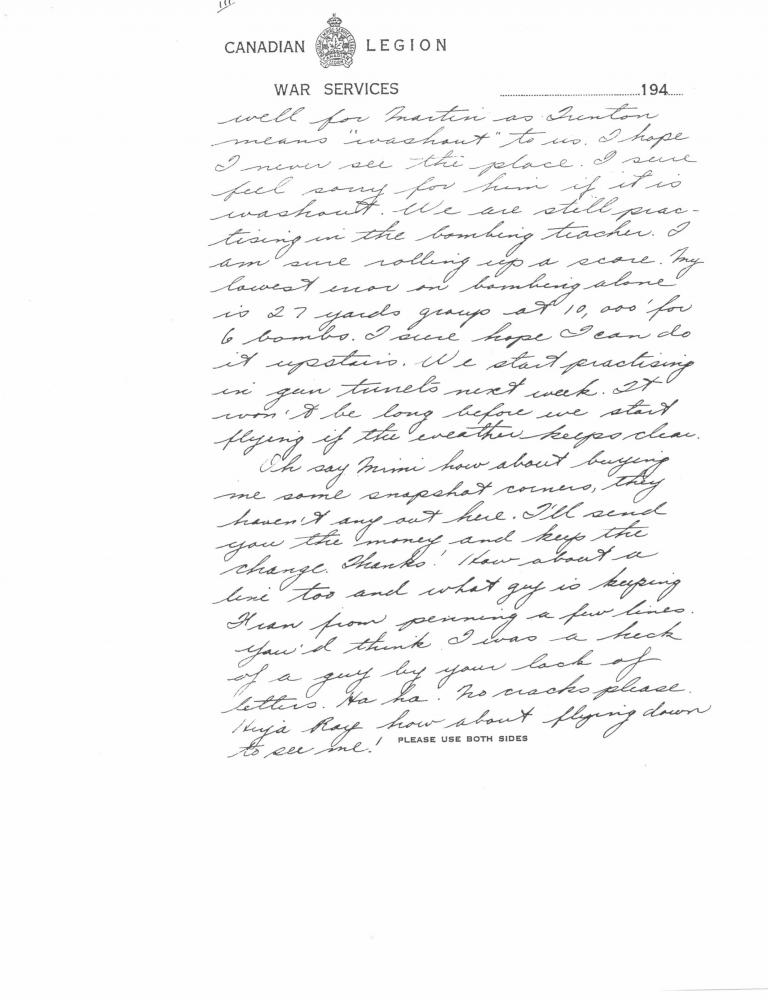 III
CANADIAN LEGION
WAR SERVICES 194
well for Martin as Trenton
means "washout" to us. I hope
I never see the place. I sure
feel sorry for him if it is
washout. We are still prac-
tising in the bombing teacher. I
am sure rolling up a score. My
lowest error on bombing alone
is 27 yards group at 10,000' for
6 bombs. I sure hope I can do
it upstairs. We start practising
in gun turrets next week. It
won't be long before we start
flying if the weather keeps clear.
Oh say Mimi how about buying
me some snapshot corners, they
haven't any out here. I'll send
you the money and keep the
change. Thanks! How about a
line too and what guy is keeping
Fran from penning a few lines.
You'd think I was a heck
of a guy by your lack of
letters. Ha ha. No cracks please.
Hiya Ray how about flying down
to see me!
PLEASE USE BOTH SIDES